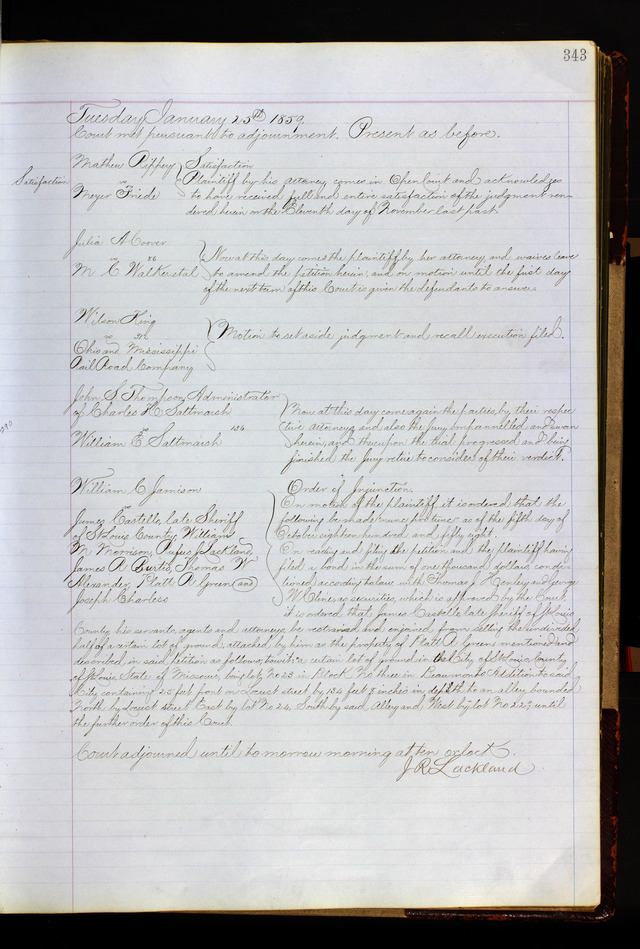 343
Tuesday January 25th 1859
Court met pursuant to adjournment. Present as before.
Mathew Rippey Satisfaction
Satisfaction Plaintiff by his attorney comes in Open Court and acknowledges
vs
Meyer Friede to have received full and entire satisfaction of the judgment ren-
dered herein on the Eleventh day of November last past.
Julia A Coover
vs 86
Now at this day comes the plaintiff by her attorney, and waives leave
M C Walker et al to amend the petition herein, and on motion until the first day
of the next term of this Court is given the defendants to answer.
Wilson King
vs
Motion to set aside judgment and recall execution filed.
Ohio and Mississippi
Rail Road Company
John S. Thompson, Administrator
of Charles H. Saltmarsh
Now at this day come again the parties by their respec-
vs 136
tive attorneys, and also the jury empannelled and sworn
William E Saltmarsh herein, and thereupon the trial progressed and being
finished the jury retire to consider of their verdict.
William C Jamison Order of Injunction.
vs
On motion of the plaintiff it is ordered that the
James Castello, late Sheriff following be made nunc pro tunc as of the fifth day of
of St Louis County, William October eighteen hundred and fifty eight.
M. Morrison, Rufus J Lackland, On reading and filing the petition and the plaintiff having
James R Burtis, Thomas W filed a bond in the sum of one thousand dollars, condi-
Alexander, Platt R Green and tioned according to law with Thomas J Henley and George
Joseph Charless W Cline as securities, which is approved by the Court
it is ordered that James Castello late Sheriff of St Louis
County, his servants, agents and attorneys be restrained and enjoined from selling the undivided
half of a certain lot of ground attached by him as the property of Platt R Green mentioned and
described in said petition as follows, towit: a certain lot of ground in the City of St Louis, County
of St Louis, State of Missouri, being lot No 23 in Block No three in Beaumonts Addition to said
City, containing 25 feet front on Locust street by 134 feet inches in depth to an alley bounded
North by Locust street, East by lot No 24, South by said Alley and West by lot No 22, until
the further order of this Court.
Court adjourned until tomorrow morning at ten oclock.
J R Lackland